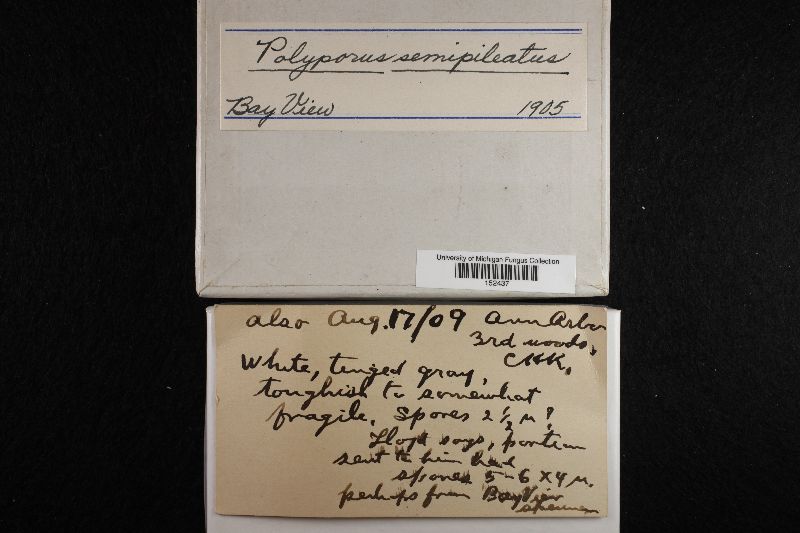 Polyporus semipileatus
Bay View 1905
University of Michigan Fungus Collection
152437
also Aug. 17/09 Ann Arbor
3rd woods.
CHK.
White, tinged gray,
toughish to somewhat
fragile. Spores 2 1/2 µ!
Lloyd says, portion
sent to him had
spores 5-6 X 4 µ.
perhaps from Bay View
specimen